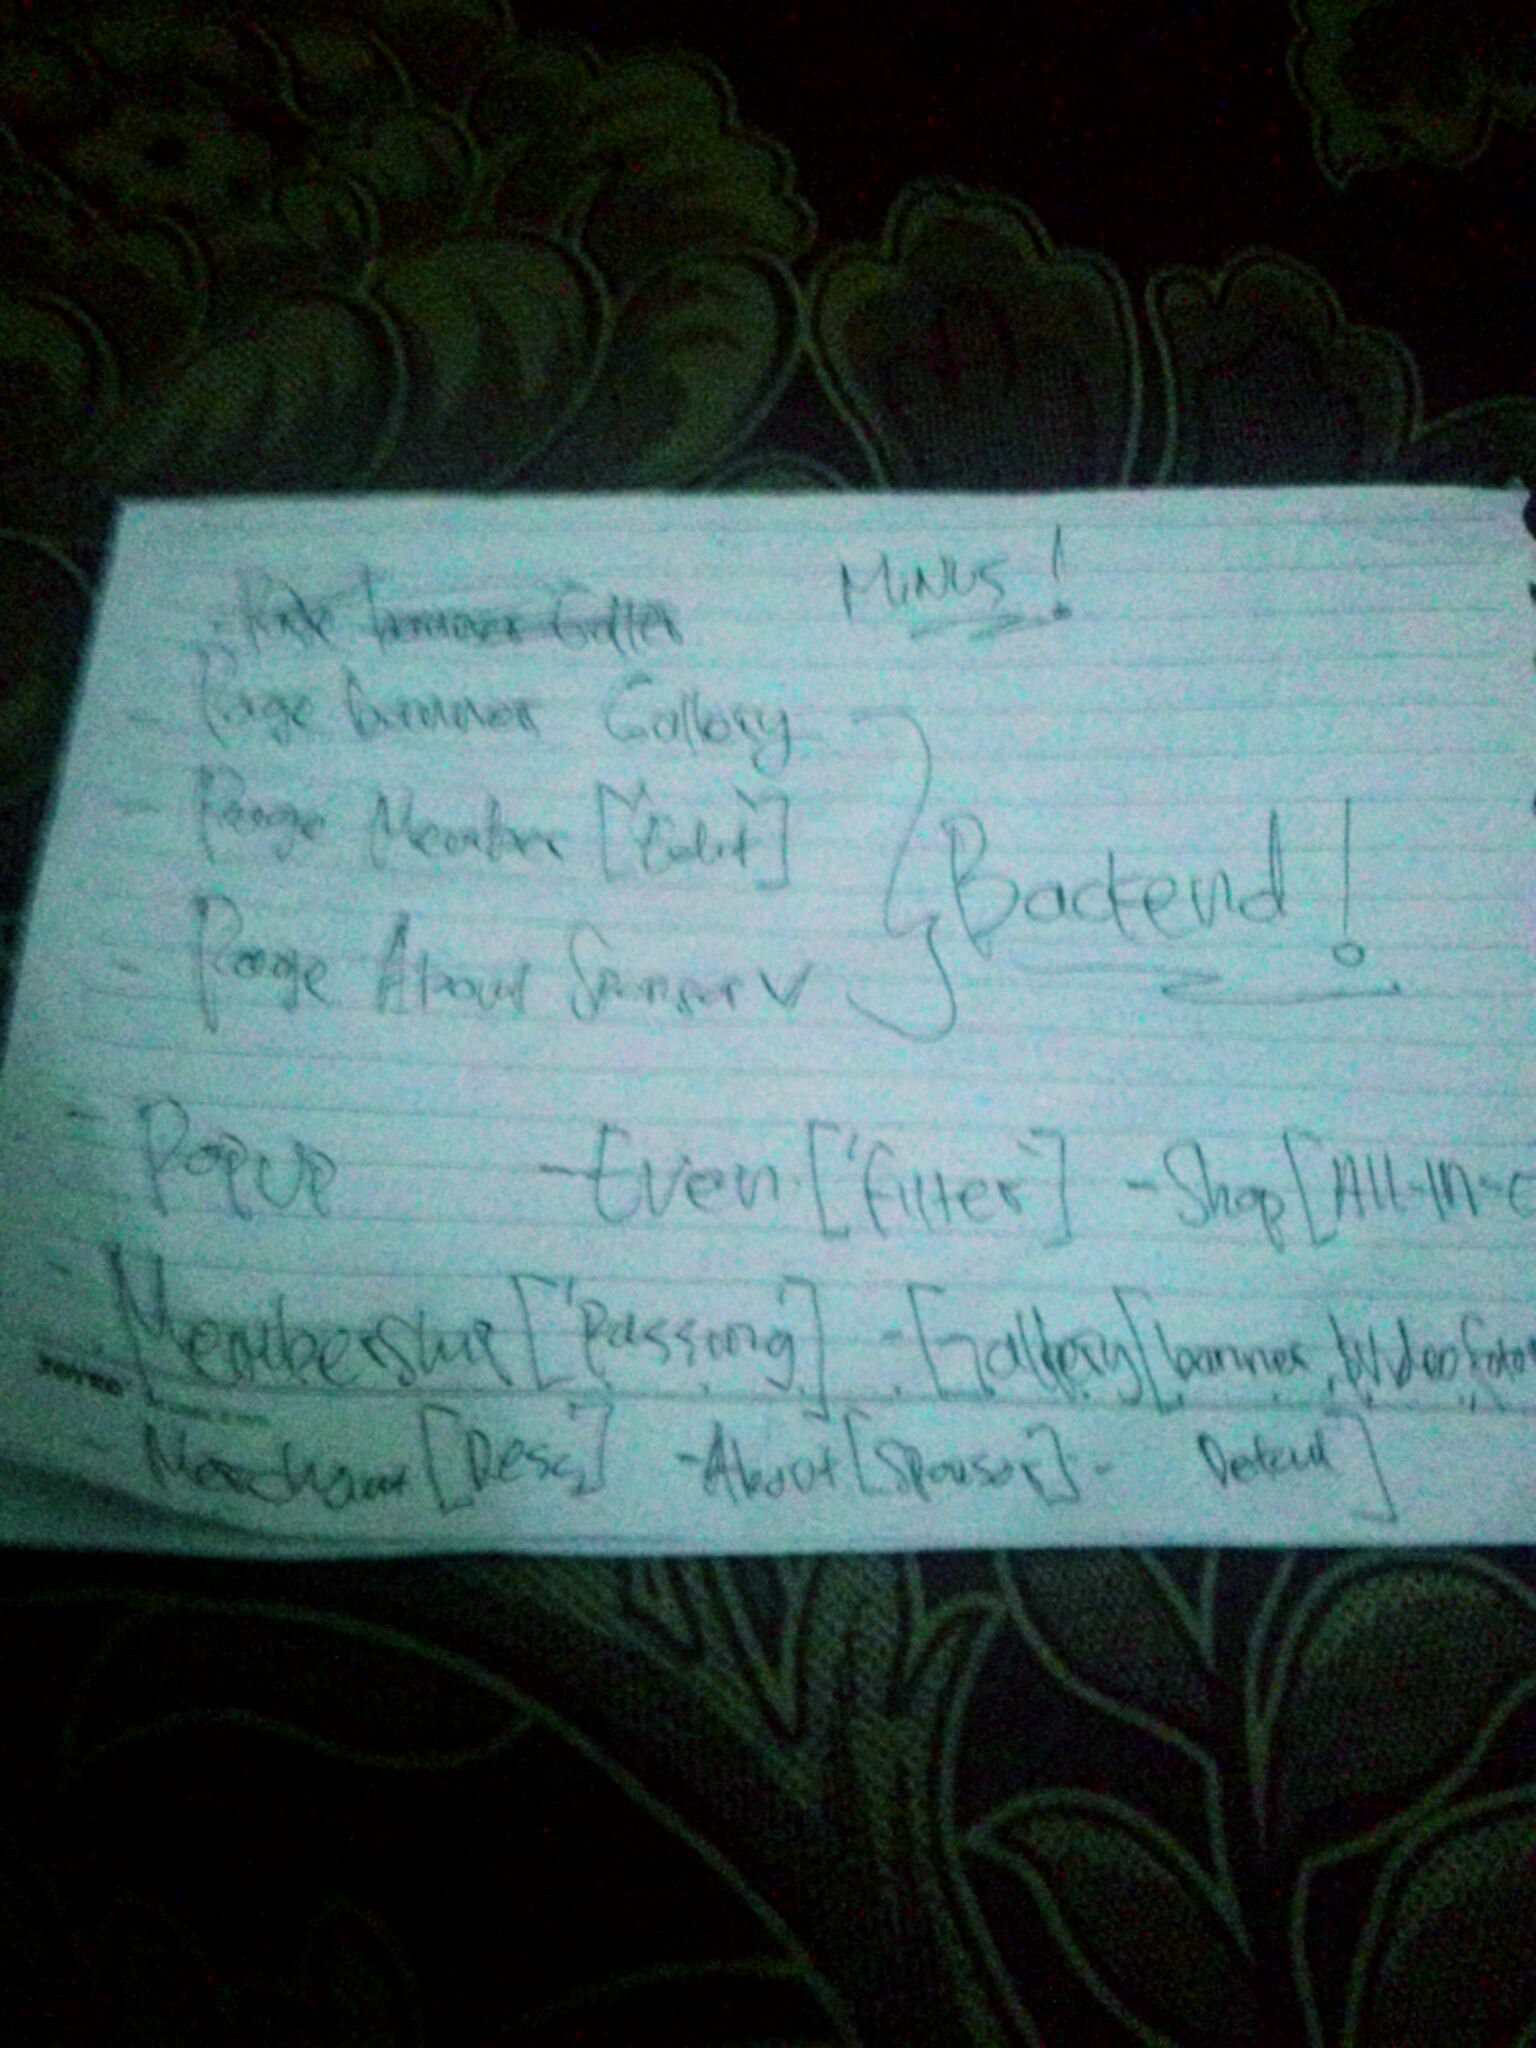 MINUS!
- Page banner Gallery
- Page Member ['Edit']
- Page About Sponsor V
Backend!
- POPUP - Even ['Filter'] - Shop [All-IN-
- Membership ['Passing'] - Gallery [banner, Video
- Merchant [Desc] - About [Sponsor] - Detail]